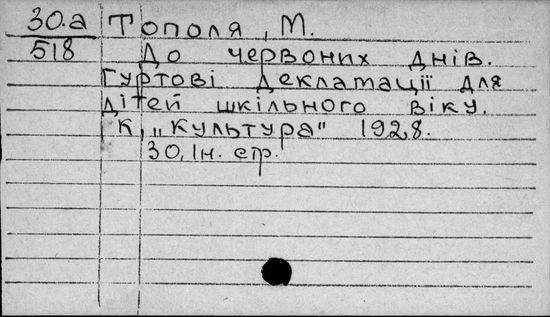 30.а Тополя, М.
518 До червоних днів.
Гуртові декламації для
дітей шкільного віку.
К, „Культура" 1928.
30, Ін. стр.